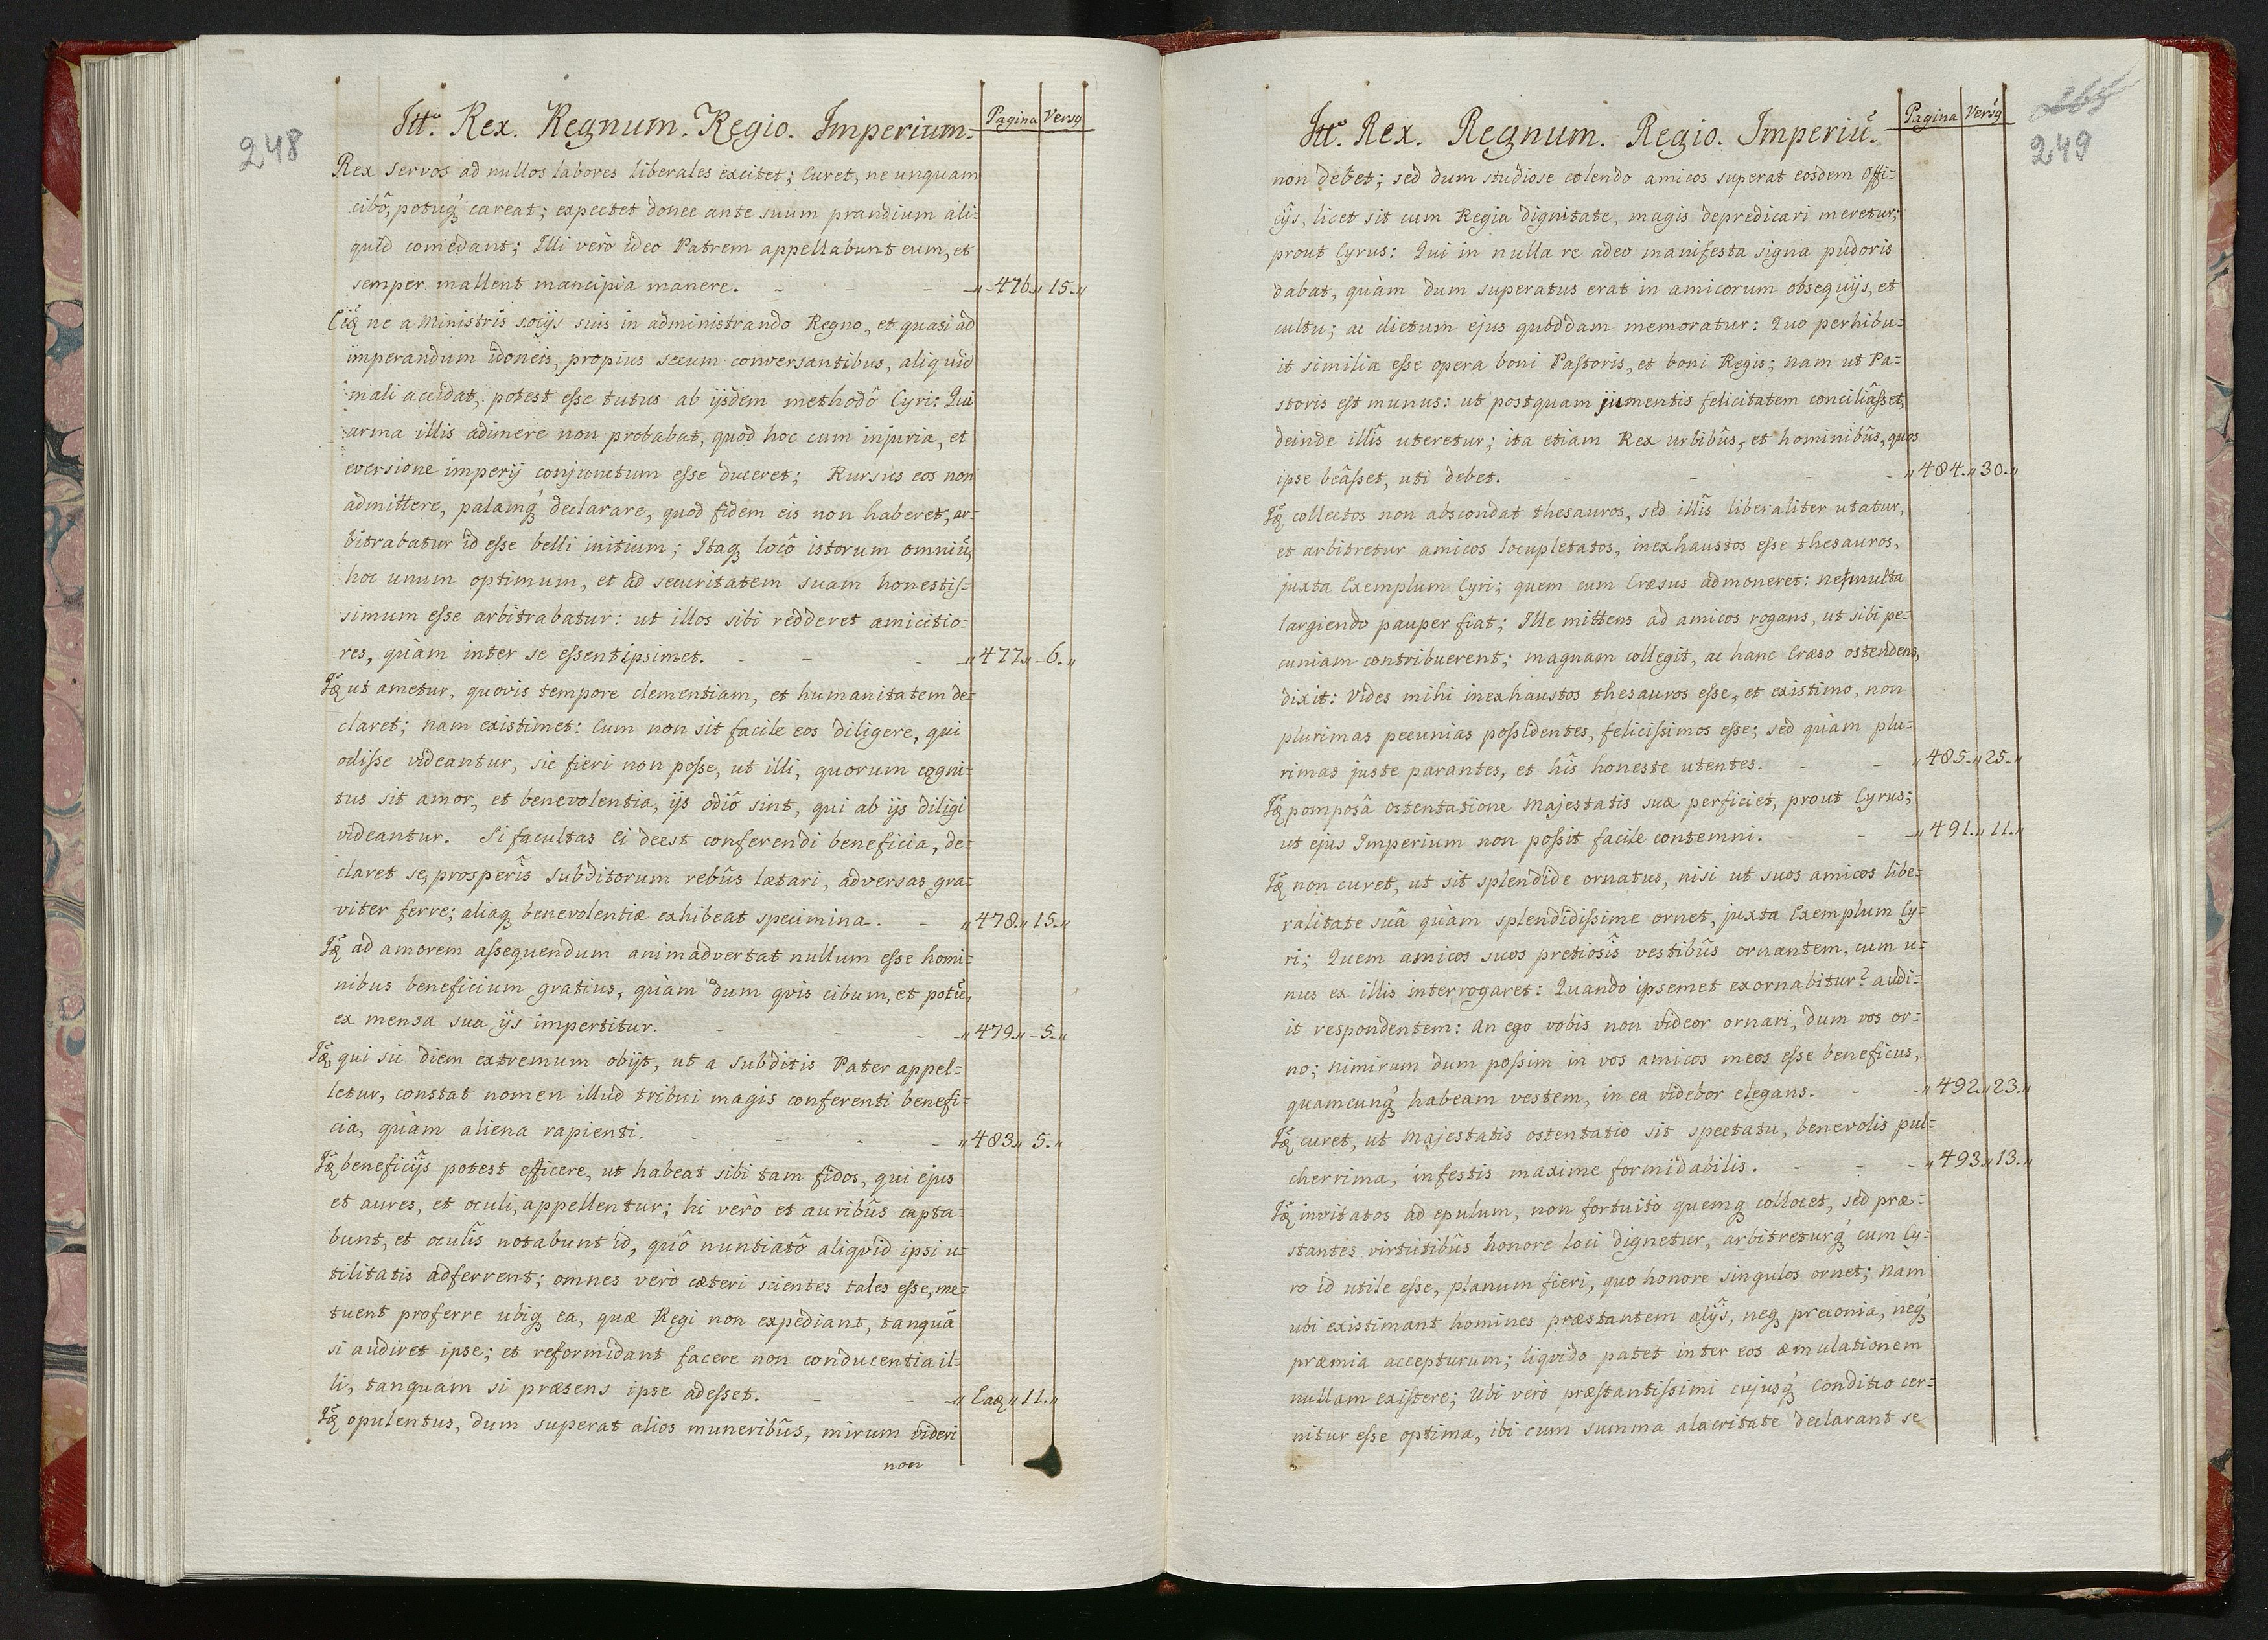 248
Itt. Rex. Regnum. Regio. Imperium.
Pagina Versq
Rex servos ad nullos labores liberales excitet; Curet, ne unquam
cibô, potuq́ careat; expectet donec ante suum prandium ali=
quid comedant; Illi verò ideo Patrem appellabunt eum, et
semper mallent mancipia manere. - - - „476.„15.„
ne a Ministris socijs suis in administrando Regno, et quasi ad
imperandum idoneis, propius secum conversantibus, aliquid
mali accidat, potest eſse tutus ab ijsdem methodô Cyri: Qui
arma illis adimere non probabat, quod hoc cum injuria, et
eversione imperij conjunctum eſse duceret; Rursus eos non
admittere, palamq́ declarare, quod fidem eis non haberet, ar=
bitrabatur id eſse belli initium; Itaq locô istorum omniũ,
hoc unum optimum, et ad securitatem suam honestiſ=
simum eſse arbitrabatur: ut illos sibi redderet amicitio=
res, quàm inter se eſsent ipsimet. - - - „477.„-6.„
ut ametur, quovis tempore clementiam, et humanitatem de=
claret; nam existimet: Cum non sit facile eos diligere, qui
odiſse videantur, sic fieri non poſse, ut illi, quorum cogni=
tus sit amor, et benevolentia, ijs odiô sint, qui ab ijs diligi
videantur. Si facultas ei deest conferendi beneficia, de=
claret se, prosperîs subditorum rebûs lætari, adversas gra=
viter ferre; aliaq benevolentiæ exhibeat specimina. - „478.„15.„
ad amorem aſsequendum animadvertat nullum eſse homi=
nibus beneficium gratius, quàm dum qvis cibum, et potũ,
ex mensa sua ijs impertitur. - - - „479.„-5.„
qui sic diem extremum obijt, ut a subditis Pater appel=
letur, constat nomen illud tribui magis conferenti benefi=
cia, quàm aliena rapienti. - - - „483.„5.„
beneficijs potest efficere, ut habeat sibi tam fidos, qui ejus
et aures, et oculi, appellentur; hi verò et auribûs capta=
bunt, et oculîs notabunt id, quô nuntiatô aliqvid ipsi u=
tilitatis adferrent; omnes verò cæteri scientes tales eſse, me=
tuent proferre ubiq ea, quæ Regi non expediant, tanquã
si audiret ipse; et reformidant facere non conducentia il=
li, tanquam si præsens ipse adeſset. - - - „Eaq„11.„
opulentus, dum superat alios muneribûs, mirum videri
non
249
Itt. Rex. Regnum. Regio. Imperiũ.
Pagina Versq
non debet; sed dum studiose colendo amicos superat eosdem Offi=
cijs, licet sit cum Regia dignitate, magis depredicari meretur;
prout Cyrus: Qui in nulla re adeo manifesta signa pudoris
dabat, quàm dum superatus erat in amicorum obsequijs, et
cultu; ac dictum ejus quoddam memoratur: Quo perhibu=
it similia eſse opera boni Paſtoris, et boni Regis; nam ut Pa=
storis eſt munus: ut postquam jumentis felicitatem conciliâſset,
deinde illîs uteretur; ita etiam Rex urbibûs, et hominibûs, quos
ipse beâſset, uti debet. - - - - „484.„30.„
collectos non abscondat thesauros, sed illîs liberaliter utatur,
et arbitretur amicos locupletatos, inexhaustos eſse thesauros,
juxta Exemplum Cyri; quem cum Cræsus admoneret: ne multa
largiendo pauper fiat; Ille mittens ad amicos rogans, ut sibi pe=
cuniam contribuerent; magnam collegit, ac hanc Cræso ostendens,
dixit: Vides mihi inexhaustos thesauros eſse, et existimo, non
plurimas pecunias poſsidentes, feliciſsimos eſse; sed quàm plu=
rimas juste parantes, et hîs honeste utentes. - - „485.„25.„
pomposâ ostentatione Majestatis suæ perficiet, prout Cyrus;
ut ejus Imperium non poſsit facile contemni. - - „491.„11.„
non curet, ut sit splendide ornatus, nisi ut suos amicos libe=
ralitate suâ quàm splendidiſsime ornet, juxta Exemplum Cy=
ri; Quem amicos suos pretiosîs vestibûs ornantem, cum u=
nus ex illis interrogaret: Quando ipsemet exornabitur? audi=
it respondentem: An ego vobis non videor ornari, dum vos or=
no; nimirum dum poſsim in vos amicos meos eſse beneficus,
quamcunq́ habeam vestem, in ea videbor elegans. - - „492.„23.„
curet, ut Majestatis ostentatio sit spectatu, benevolis pul=
cherrima, infestis maxime formidabilis. - - - „493.„13.„
invitatos ad epulum, non fortuitò quemq collocet, sed præ=
stantes virtutibûs honore loci dignetur, arbitreturq́ cum Cy=
ro id utile eſse, planum fieri, quo honore singulos ornet; nam
ubi existimant homines præstantem alijs, neq præconia, neq́
præmia accepturum; liqvido patet inter eos æmulationem
nullam exiſtere; Ubi verò præſtantiſsimi cujusq́ conditio cer=
nitur eſse optima, ibi cum summa alacritate declarant se